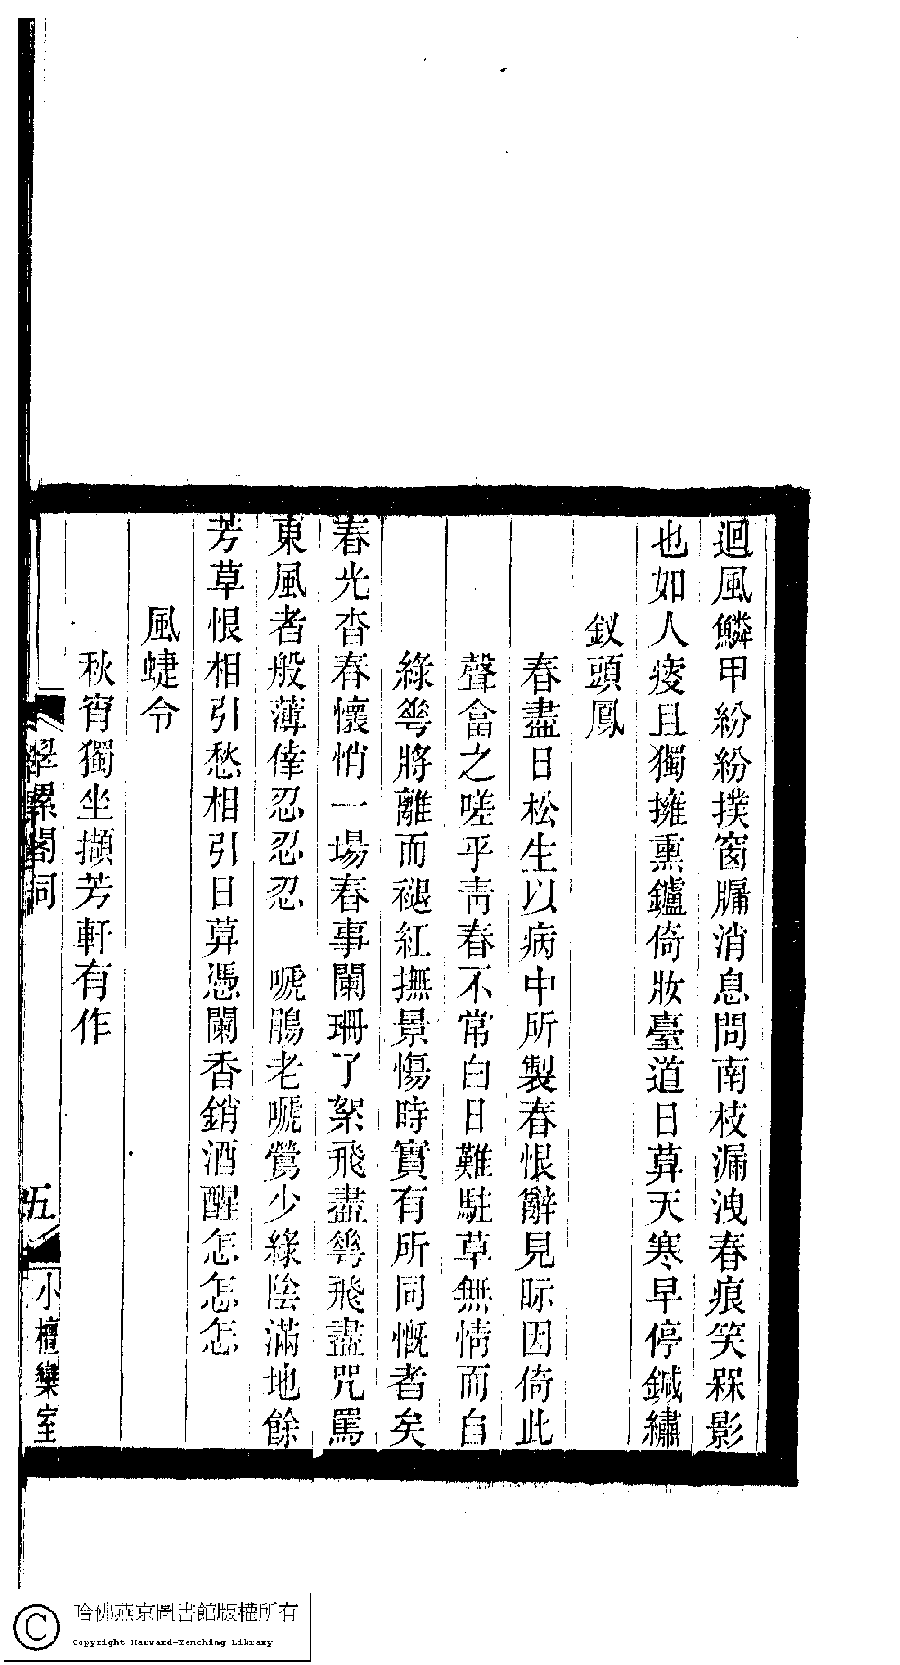 迴風鱗甲紛紛撲窗牖消息問南枝漏洩春痕笑槑影
也如人痩且獨擁熏鑪倚妝臺道日蓂天寒早停鍼繡
釵頭鳳
春盡日松生以病中所製春恨辭見眎因倚此
聲畣之嗟乎靑春不常白日難駐草無情而自
綠蕐將離而褪紅撫景慯時實有所同慨者矣
春光杳春懷悄一塲春事闌珊了絮飛盡蕐飛盡咒罵
東風者般薄倖忍忍忍　嗁鵑老嗁鶯少綠陰滿地餘
芳草恨相引愁相引日莫憑闌香銷酒醒怎怎怎
風蜨令
秋宵獨坐擷芳軒有作
翠螺閣詞
五
小檀欒室
哈佛燕京圖書館版權所有
Copyright Harvard-Yenching Library